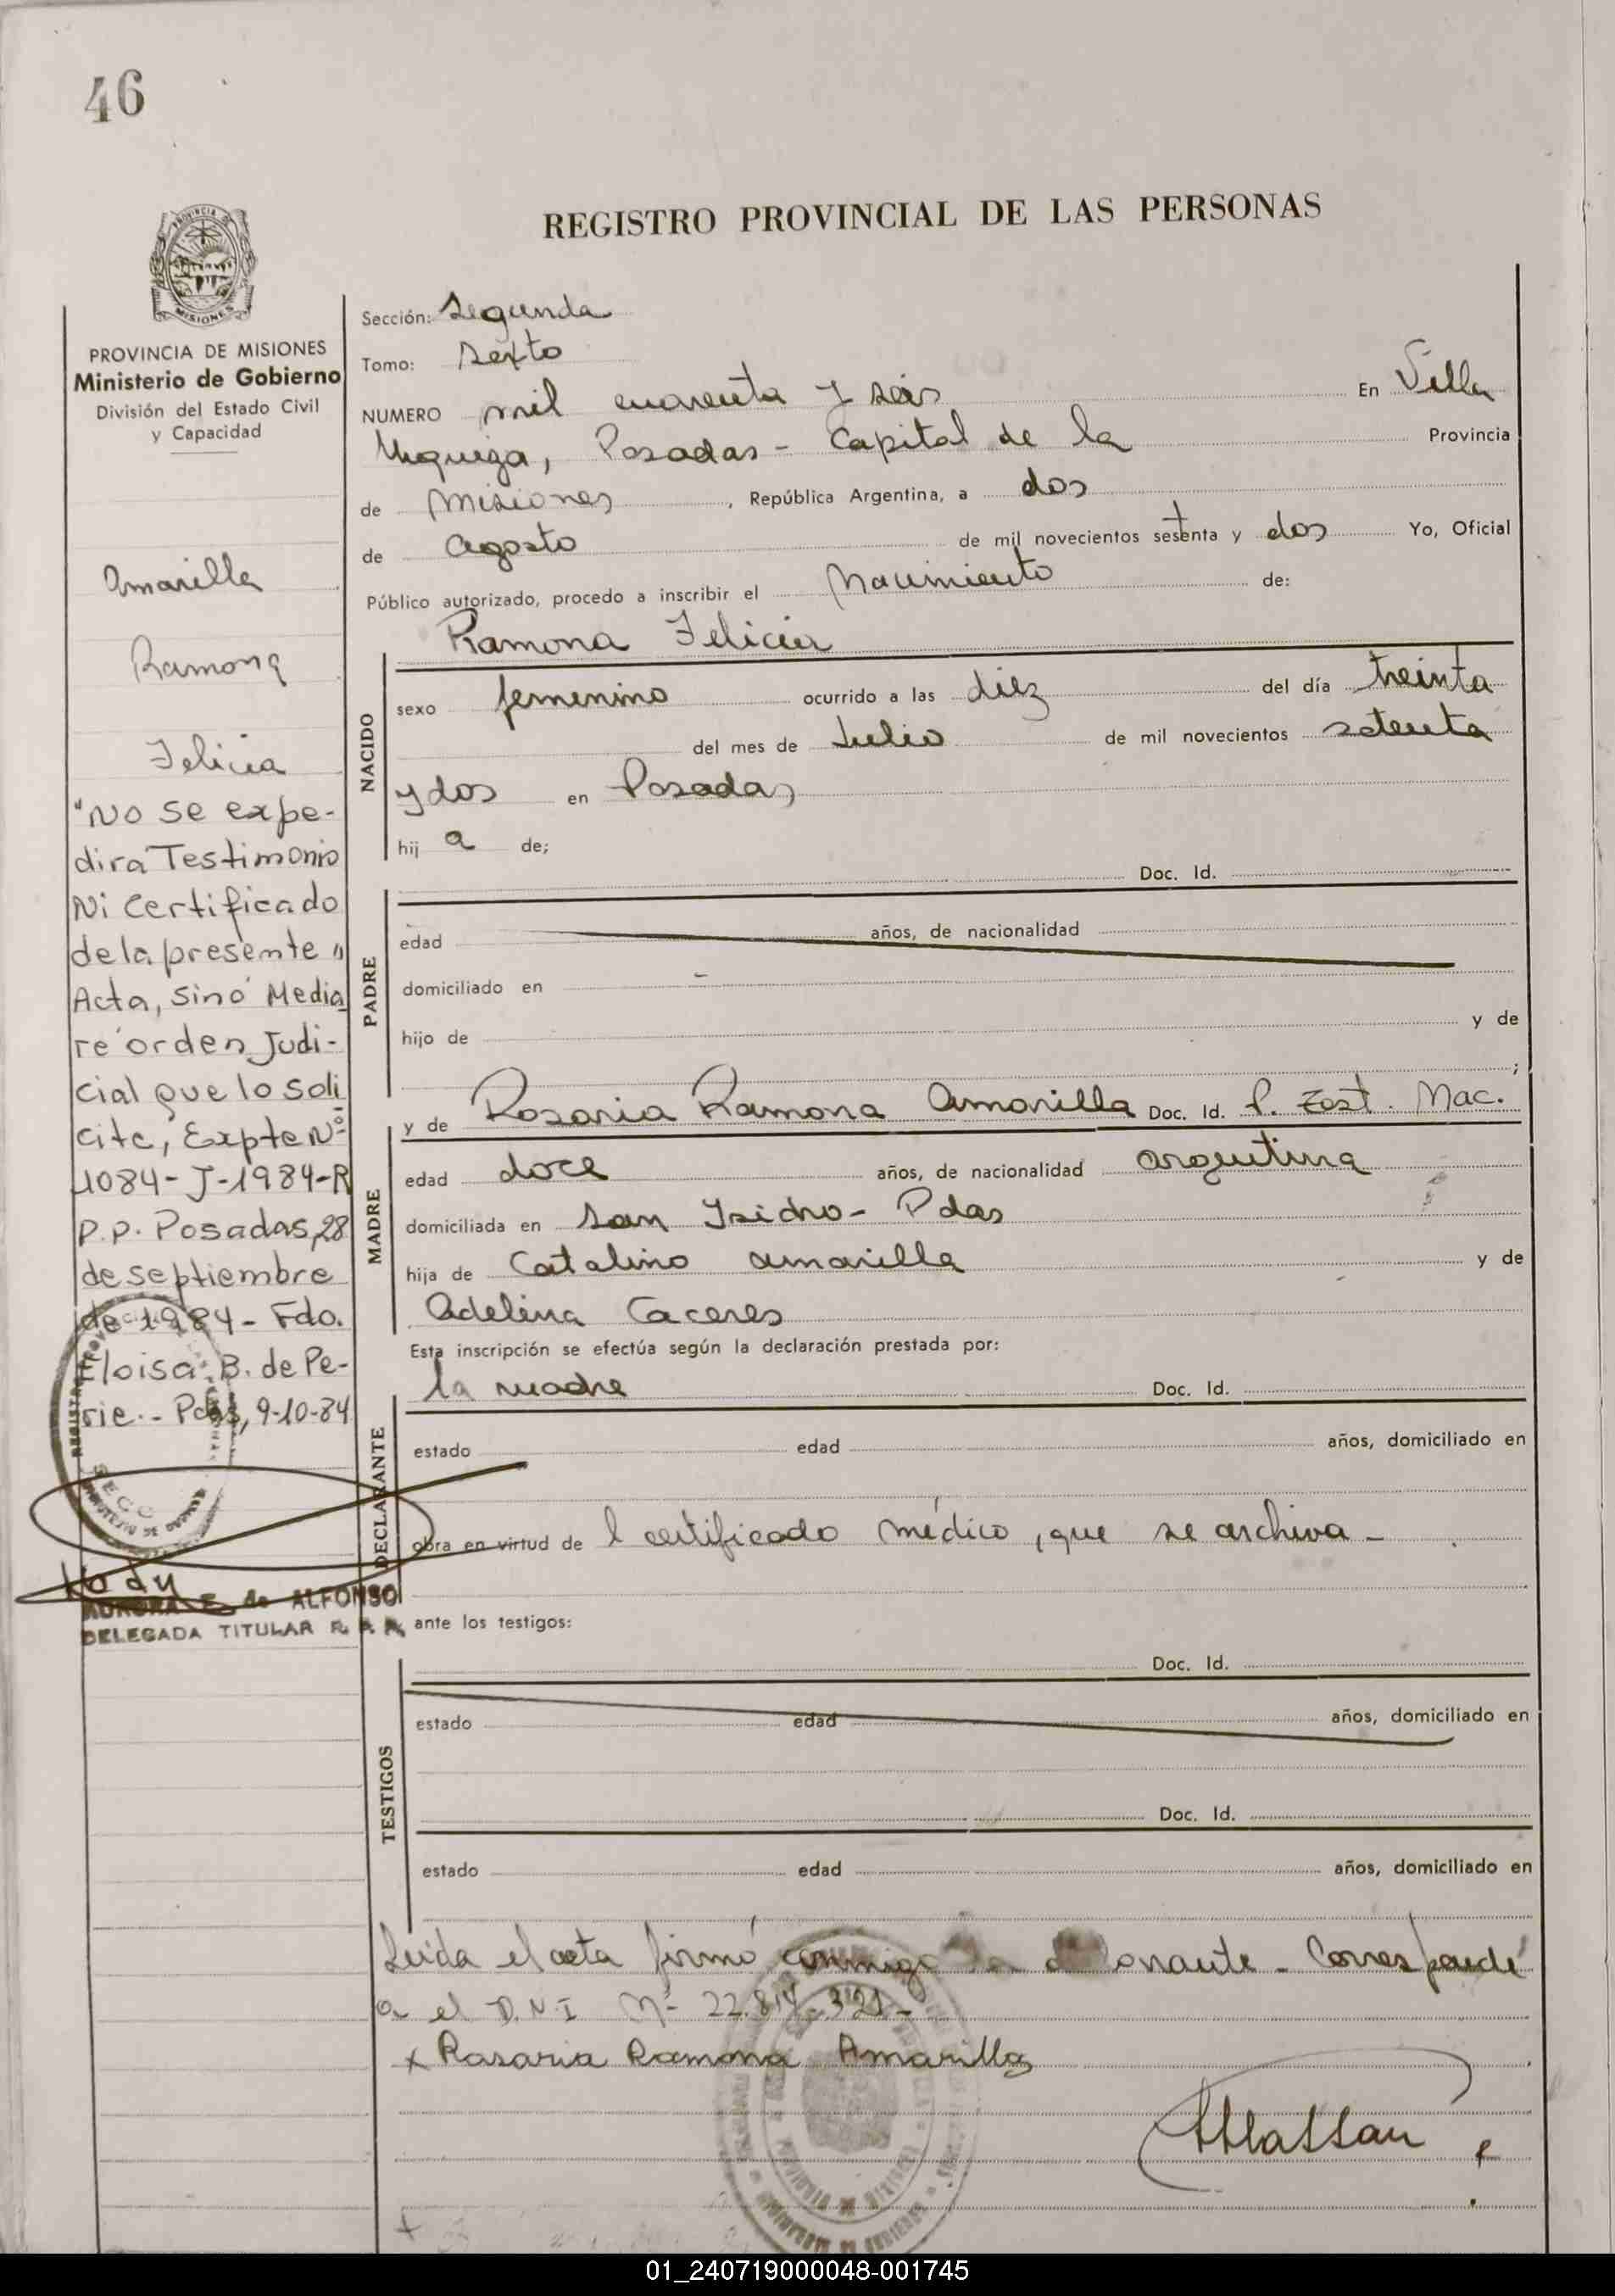 46
REGISTRO PROVINCIAL DE LAS PERSONAS
MISIONES
PROVINCIA DE MISIONES
Ministerio de Gobierno
División del Estado Civil
y Capacidad
Amarilla
Ramona
Felicia
"No se expe-
dirá Testimonio
Ni certificado
de la presente "
Acta, sinó Media
re órden Judi-
cial que lo soli
cite, Expte Nº
1084-J-1984-R
P.P. Posadas, 28
de septiembre
de 1984- Fdo.
Eloisa B. de Pe-
rie.- Pdas, 9-10-84
de ALFONSO
DELEGADA TITULAR R. P. P.
Sección: Segunda
Tomo: Sexto
NUMERO mil cuarenta y seis En Villa
Urquiza, Posadas - Capital de la Provincia
de Misiones, República Argentina, a dos
de Agosto de mil novecientos setenta y dos Yo, Oficial
Público autorizado, procedo a inscribir el Nacimiento de:
Ramona Felicia
NACIDO
sexo femenino ocurrido a las diez del día treinta
del mes de Julio de mil novecientos setenta
y dos en Posadas
hij a de;
Doc. Id.
PADRE
edad años, de nacionalidad
domiciliado en
hijo de y de
;
y de Rosaria Ramona Amarilla Doc. Id. P. Zost. Mac.
MADRE
edad doce años, de nacionalidad argentina
domiciliada en San Isidro - Pdas
hija de Catalino Amarilla y de
Adelina Caceres
Esta inscripción se efectúa según la declaración prestada por:
la madre Doc. Id.
DECLARANTE
estado edad años, domiciliado en
obra en virtud de l certificado médico, que se archiva -
ante los testigos:
Doc. Id.
TESTIGOS
estado edad años, domiciliado en
Doc. Id.
estado edad años, domiciliado en
Leida el acta firmó conmigo la Corresponde
a el D.N.I Nº 22.814.321-
x Rosaria Ramona Amarilla
01_240719000048-001745